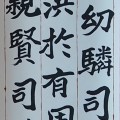 幼驎司
洪於有周
親賢司